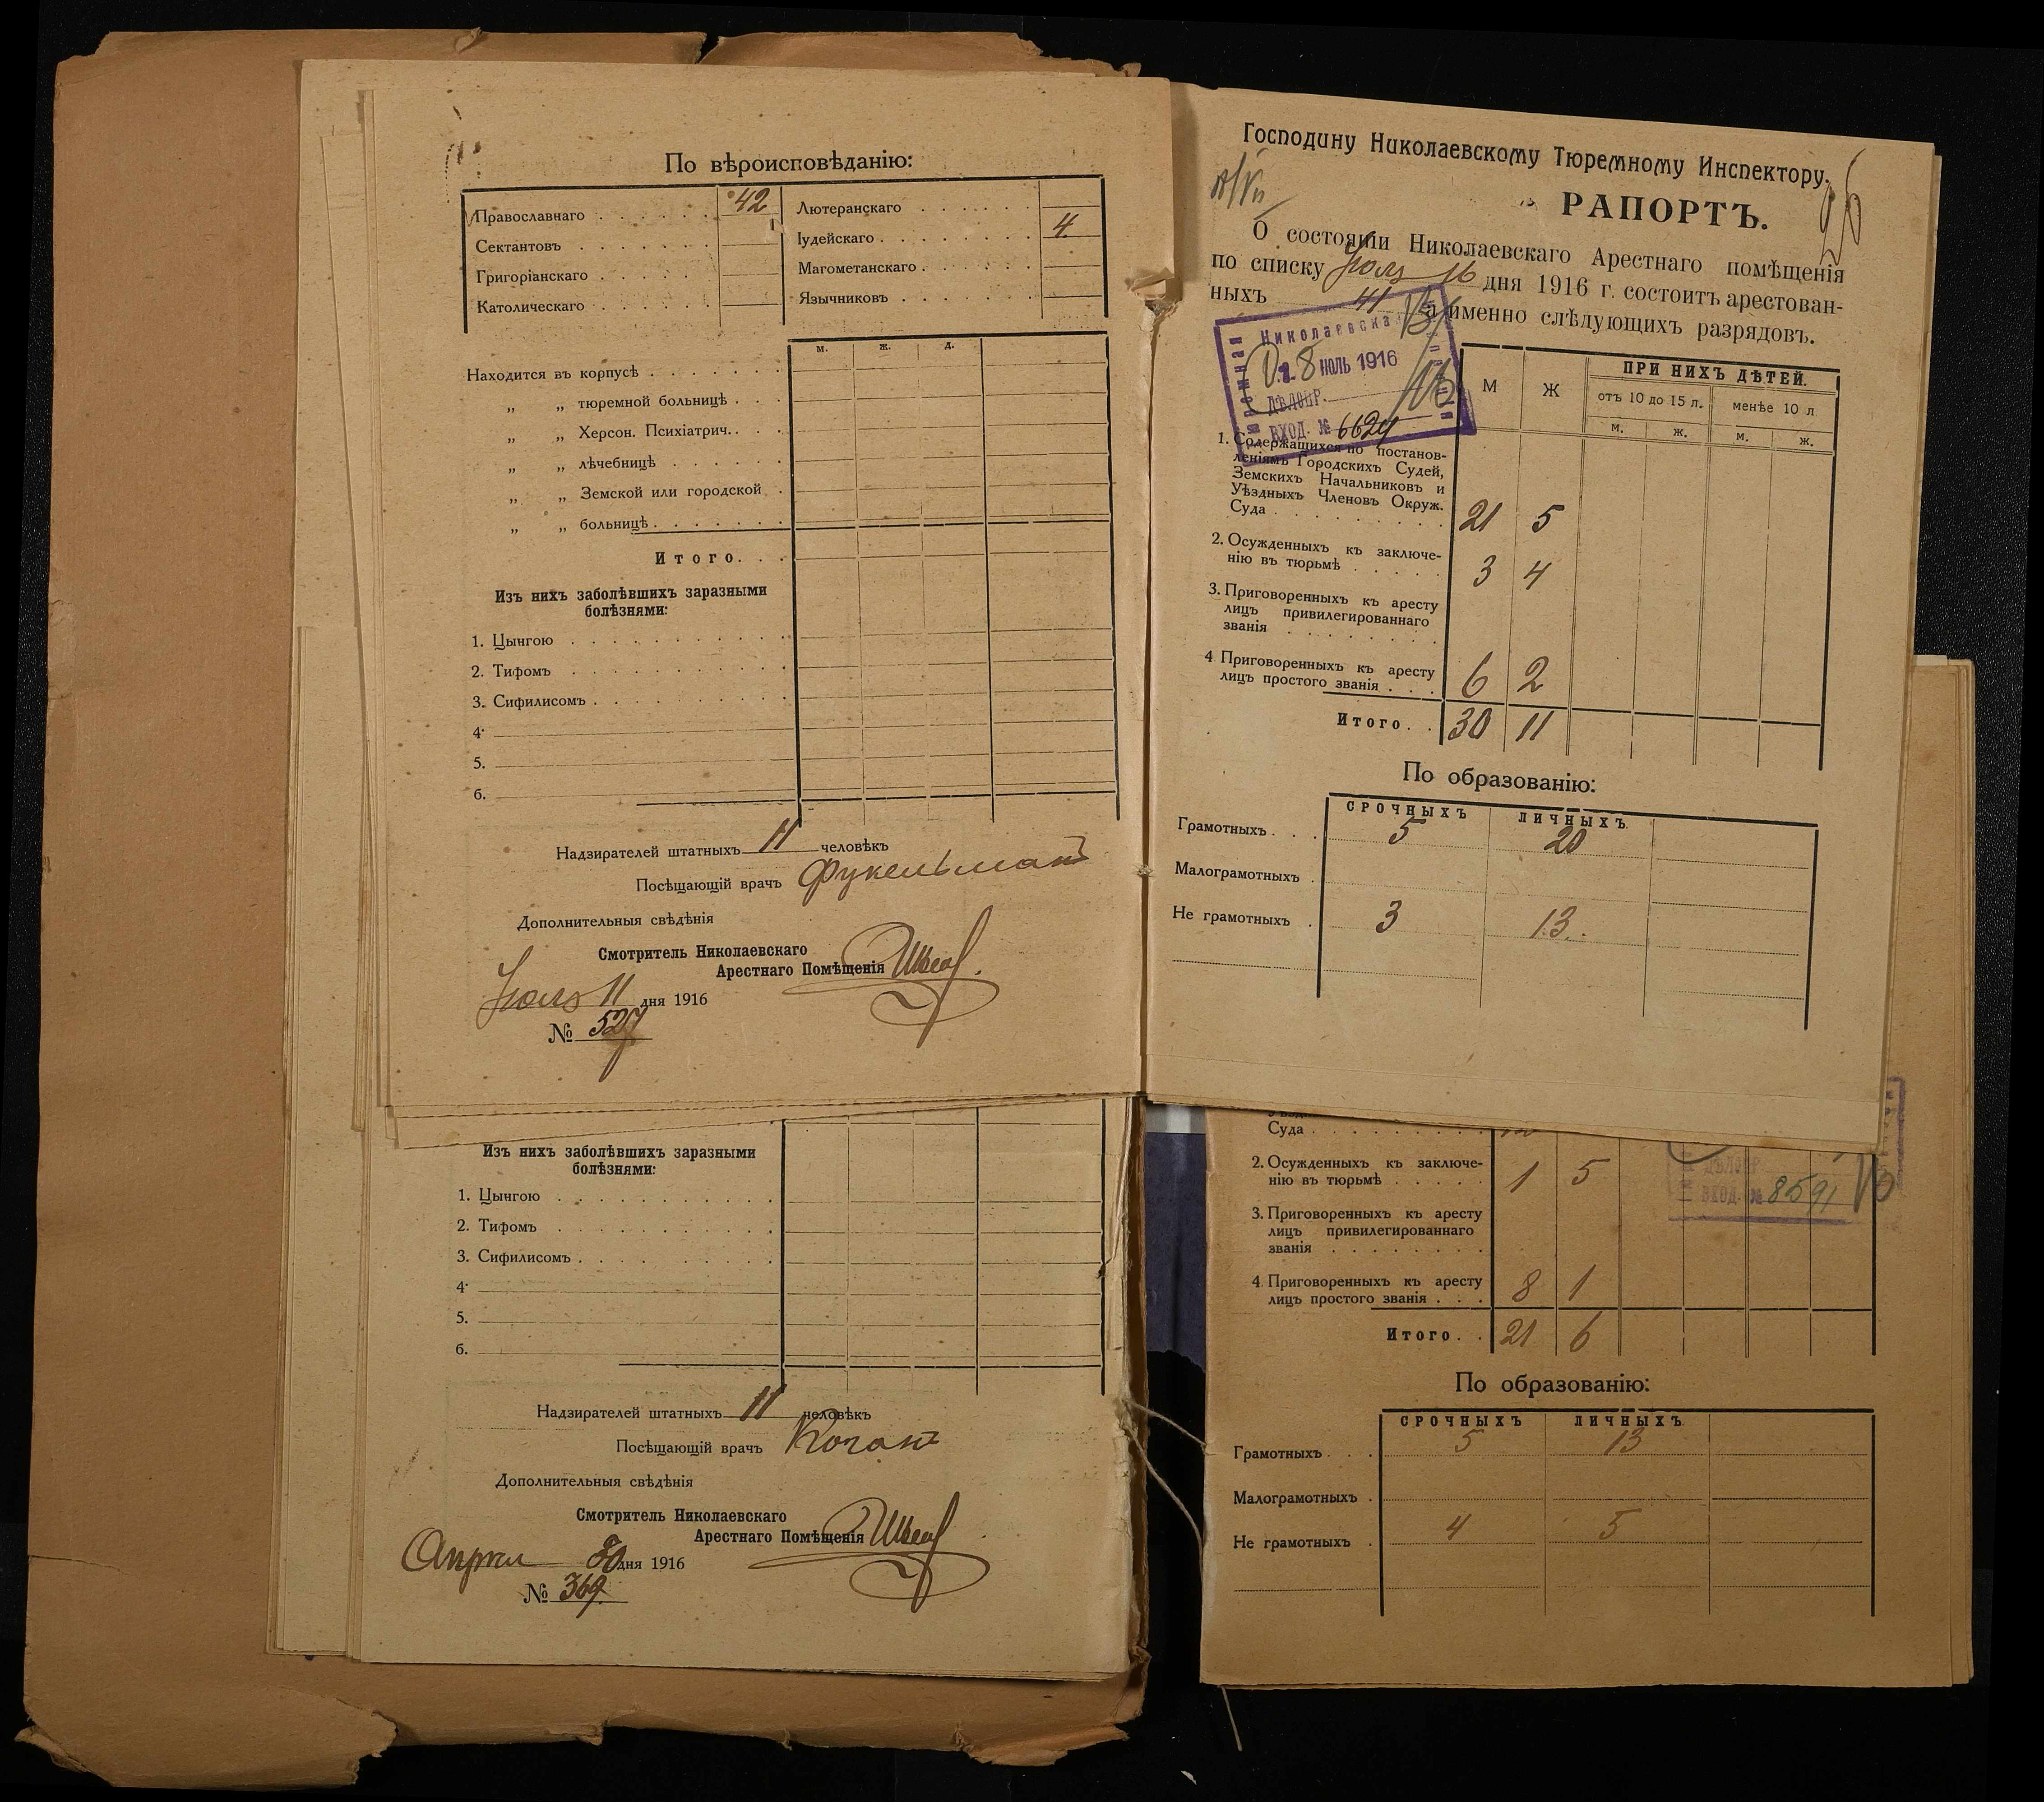 По вѣроисповѣданію:
Православнаго . . . . . . 42
Сектантовъ . . . . . . .
Григоріанскаго . . . . .
Католическаго . . . . .
Лютеранскаго . . . . . .
Іудейскаго . . . . . . . . 4
Магометанскаго . . . . . .
Язычниковъ . . . . . . .
м. ж. д.
Находится въ корпусѣ . . . . . . .
„ „ тюремной больницѣ . . .
„ „ Херсон. Психіатрич. . . .
„ „ лѣчебницѣ . . . . . .
„ „ Земской или городской .
„ „ больницѣ . . . . . . .
Итого. . .
Изъ нихъ заболѣвшихъ заразными
болѣзнями:
1. Цынгою . . . . . . . . . . .
2. Тифомъ . . . . . . . . . . .
3. Сифилисомъ . . . . . . . . .
4.
5.
6.
Надзирателей штатныхъ 11 человѣкъ
Посѣщающій врачъ Фукельманъ
Дополнительныя свѣдѣнія
Смотритель Николаевскаго
Арестнаго Помѣщенія
Іюля 11 дня 1916
№ 527
Изъ нихъ заболѣвшихъ заразными
болѣзнями:
1. Цынгою . . . . . . . . . . .
2. Тифомъ . . . . . . . . . . .
3. Сифилисомъ . . . . . . . . .
4.
5.
6.
Надзирателей штатныхъ 11 человѣкъ
Посѣщающій врачъ Коганъ
Дополнительныя свѣдѣнія
Смотритель Николаевскаго
Арестнаго Помѣщенія
Апрел 30 дня 1916
№ 369.
Господину Николаевскому Тюремному Инспектору.
26
РАПОРТЪ.
О состояніи Николаевскаго Арестнаго помѣщенія
по списку Іюля 16 дня 1916 г. состоитъ арестован-
ныхъ 41 а именно слѣдующихъ разрядовъ.
Николаевская
18 ІЮЛЬ 1916
ДѢЛОПР.
ВХОД. № 6624
М Ж ПРИ НИХЪ ДѢТЕЙ.
отъ 10 до 15 л. менѣе 10 л
м. ж. м. ж.
1. Содержащихся по постанов-
леніямъ Городскихъ Судей,
Земскихъ Начальниковъ и
Уѣздныхъ Членовъ Окруж.
Суда . . . . . . . . . 21 5
2. Осужденныхъ къ заключе-
нію въ тюрьмѣ . . . . . 3 4
3. Приговоренныхъ къ аресту
лицъ привилегированнаго
званія . . . . . . . .
4 Приговоренныхъ къ аресту
лицъ простого званія . . . 6 2
Итого. . 30 11
По образованію:
СРОЧНЫХЪ ЛИЧНЫХЪ
Грамотныхъ . . . 5 20
Малограмотныхъ .
Не грамотныхъ . 3 13
Суда . . . . . . . . .
2. Осужденныхъ къ заключе-
нію въ тюрьмѣ . . . . . 1 5
ДѢЛОПР.
ВХОД. № 8591
3. Приговоренныхъ къ аресту
лицъ привилегированнаго
званія . . . . . . . .
4. Приговоренныхъ къ аресту
лицъ простого званія . . . 8 1
Итого. . 21 6
По образованію:
СРОЧНЫХЪ ЛИЧНЫХЪ
Грамотныхъ . . . 5 13
Малограмотныхъ .
Не грамотныхъ . 4 5